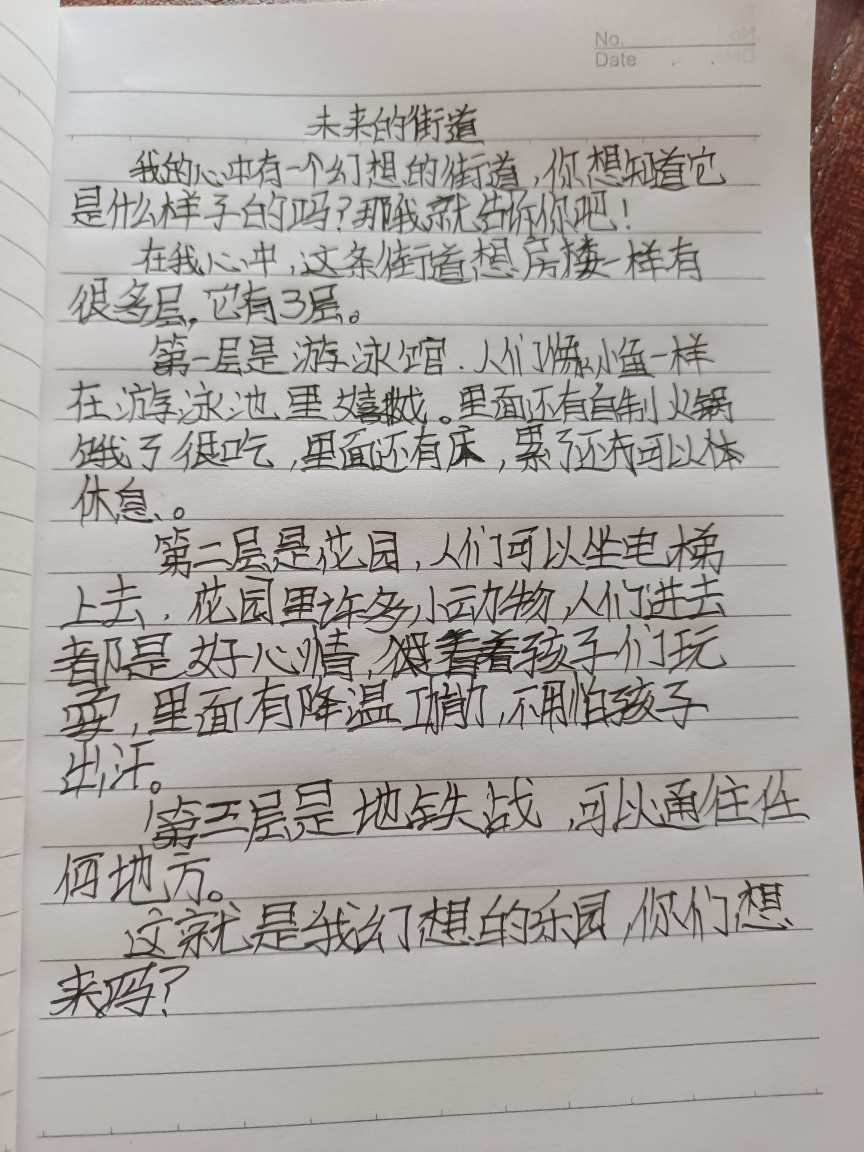 No.
Date
未来的街道
我的心中有一个幻想的街道,你想知道它
是什么样子的吗?那我就告诉你吧!
在我心中,这条街道想房楼一样有
很多层,它有3层。
第一层是游泳馆.人们像小鱼一样
在游泳池里嬉戏。里面还有自制火锅
饿了很吃,里面还有床,累了还有可以体
休息、。
第二层是花园,人们可以坐电梯
上去,花园里许多小动物,人们进去
都是好心情,着孩子们玩
耍,里面有降温功能,不用怕孩子
出汗。
第三层是地铁战,可以通住任
何地方。
这就是我幻想的乐园,你们想
来吗?